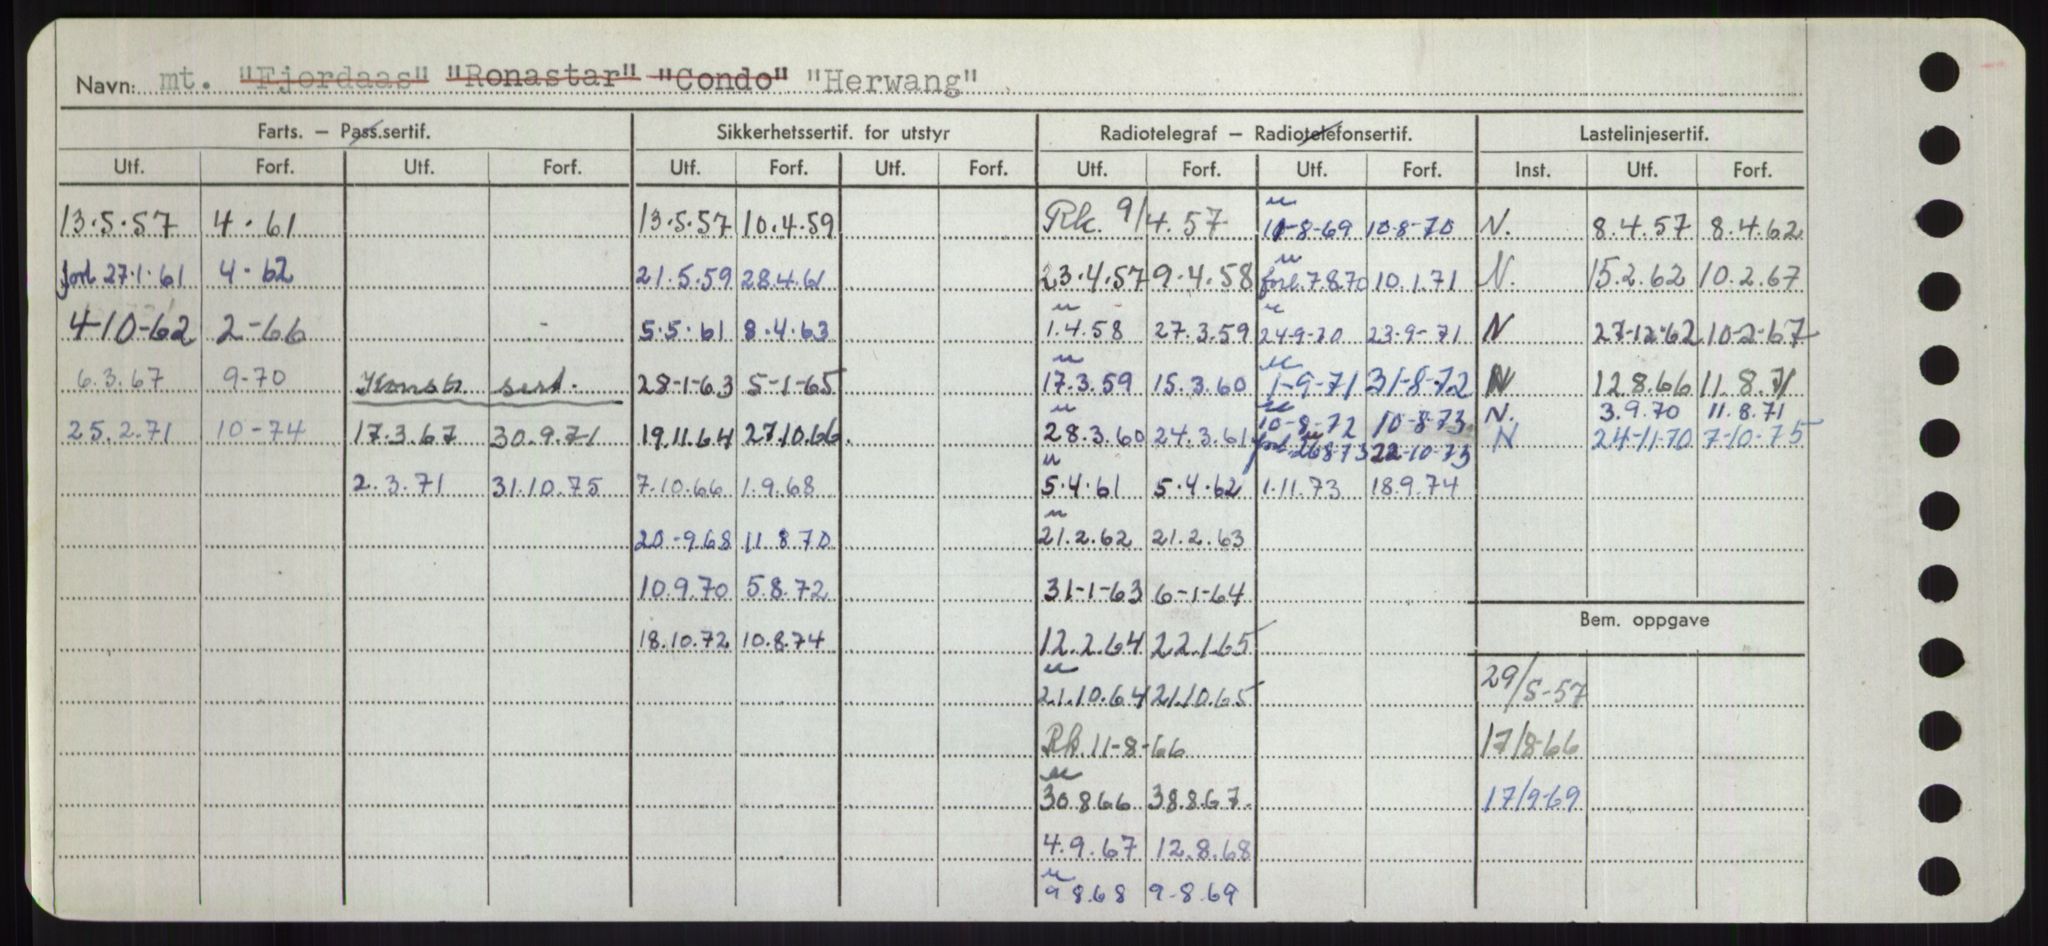 Navn: mt. "Fjordaas" "Ronastar" "Condo" "Herwang"
Farts. — Pass.sertif. Sikkerhetssertif. for utstyr Radiotelegraf — Radiotelefonsertif. Lastelinjesertif.
Utf. Forf. Utf. Forf. Utf. Forf. Utf. Forf. Utf. Forf. Utf. Forf. Inst. Utf. Forf.
13.5.57 4.61 13.5.57 10.4.59 Rk. 9/4.57 11-8-69 10-8-70 N. 8.4.57 8.4.62
forl 27.1.61 4.62 21.5.59 28.4.61 23.4.57 9.4.58 forl. 7.8.70 10.1.71 N. 15.2.62 10.2.67
4-10-62 2-66 5.5.61 8.4.63 1.4.58 27.3.59 24-9-70 23-9-71 N 27-12-62 10-2-67
6.3.67 9-70 Konstr. sert. 28-1-63 5-1-65 17.3.59 15.3.60 1-9-71 31-8-72 N 12.8.66 11.8.71
10-8-72 10-8-73 N. 3.9.70 11.8.71
25.2.71 10-74 17.3.67 30.9.71 19.11.64 27.10.66. 28.3.60 24.3.61 forl. 26.8.73 22-10-73 N 24-11-70 7-10-75
2.3.71 31.10.75 7.10.66 1.9.68 5.4.61 5.4.62 1.11.73 18.9.74
20-9.68 11.8.70 21.2.62 21.2.63
10.9.70 5.8.72 31-1-63 6-1-64
Bem. oppgave
18.10.72 10.8.74 12.2.64 22.1.65
21.10.64 21.10.65 29/5-57
Rk. 11-8-66 17/8-66
30.8.66 38.8.67. 17/9-69
4.9.67 12.8.68
9.8.68 9-8.69